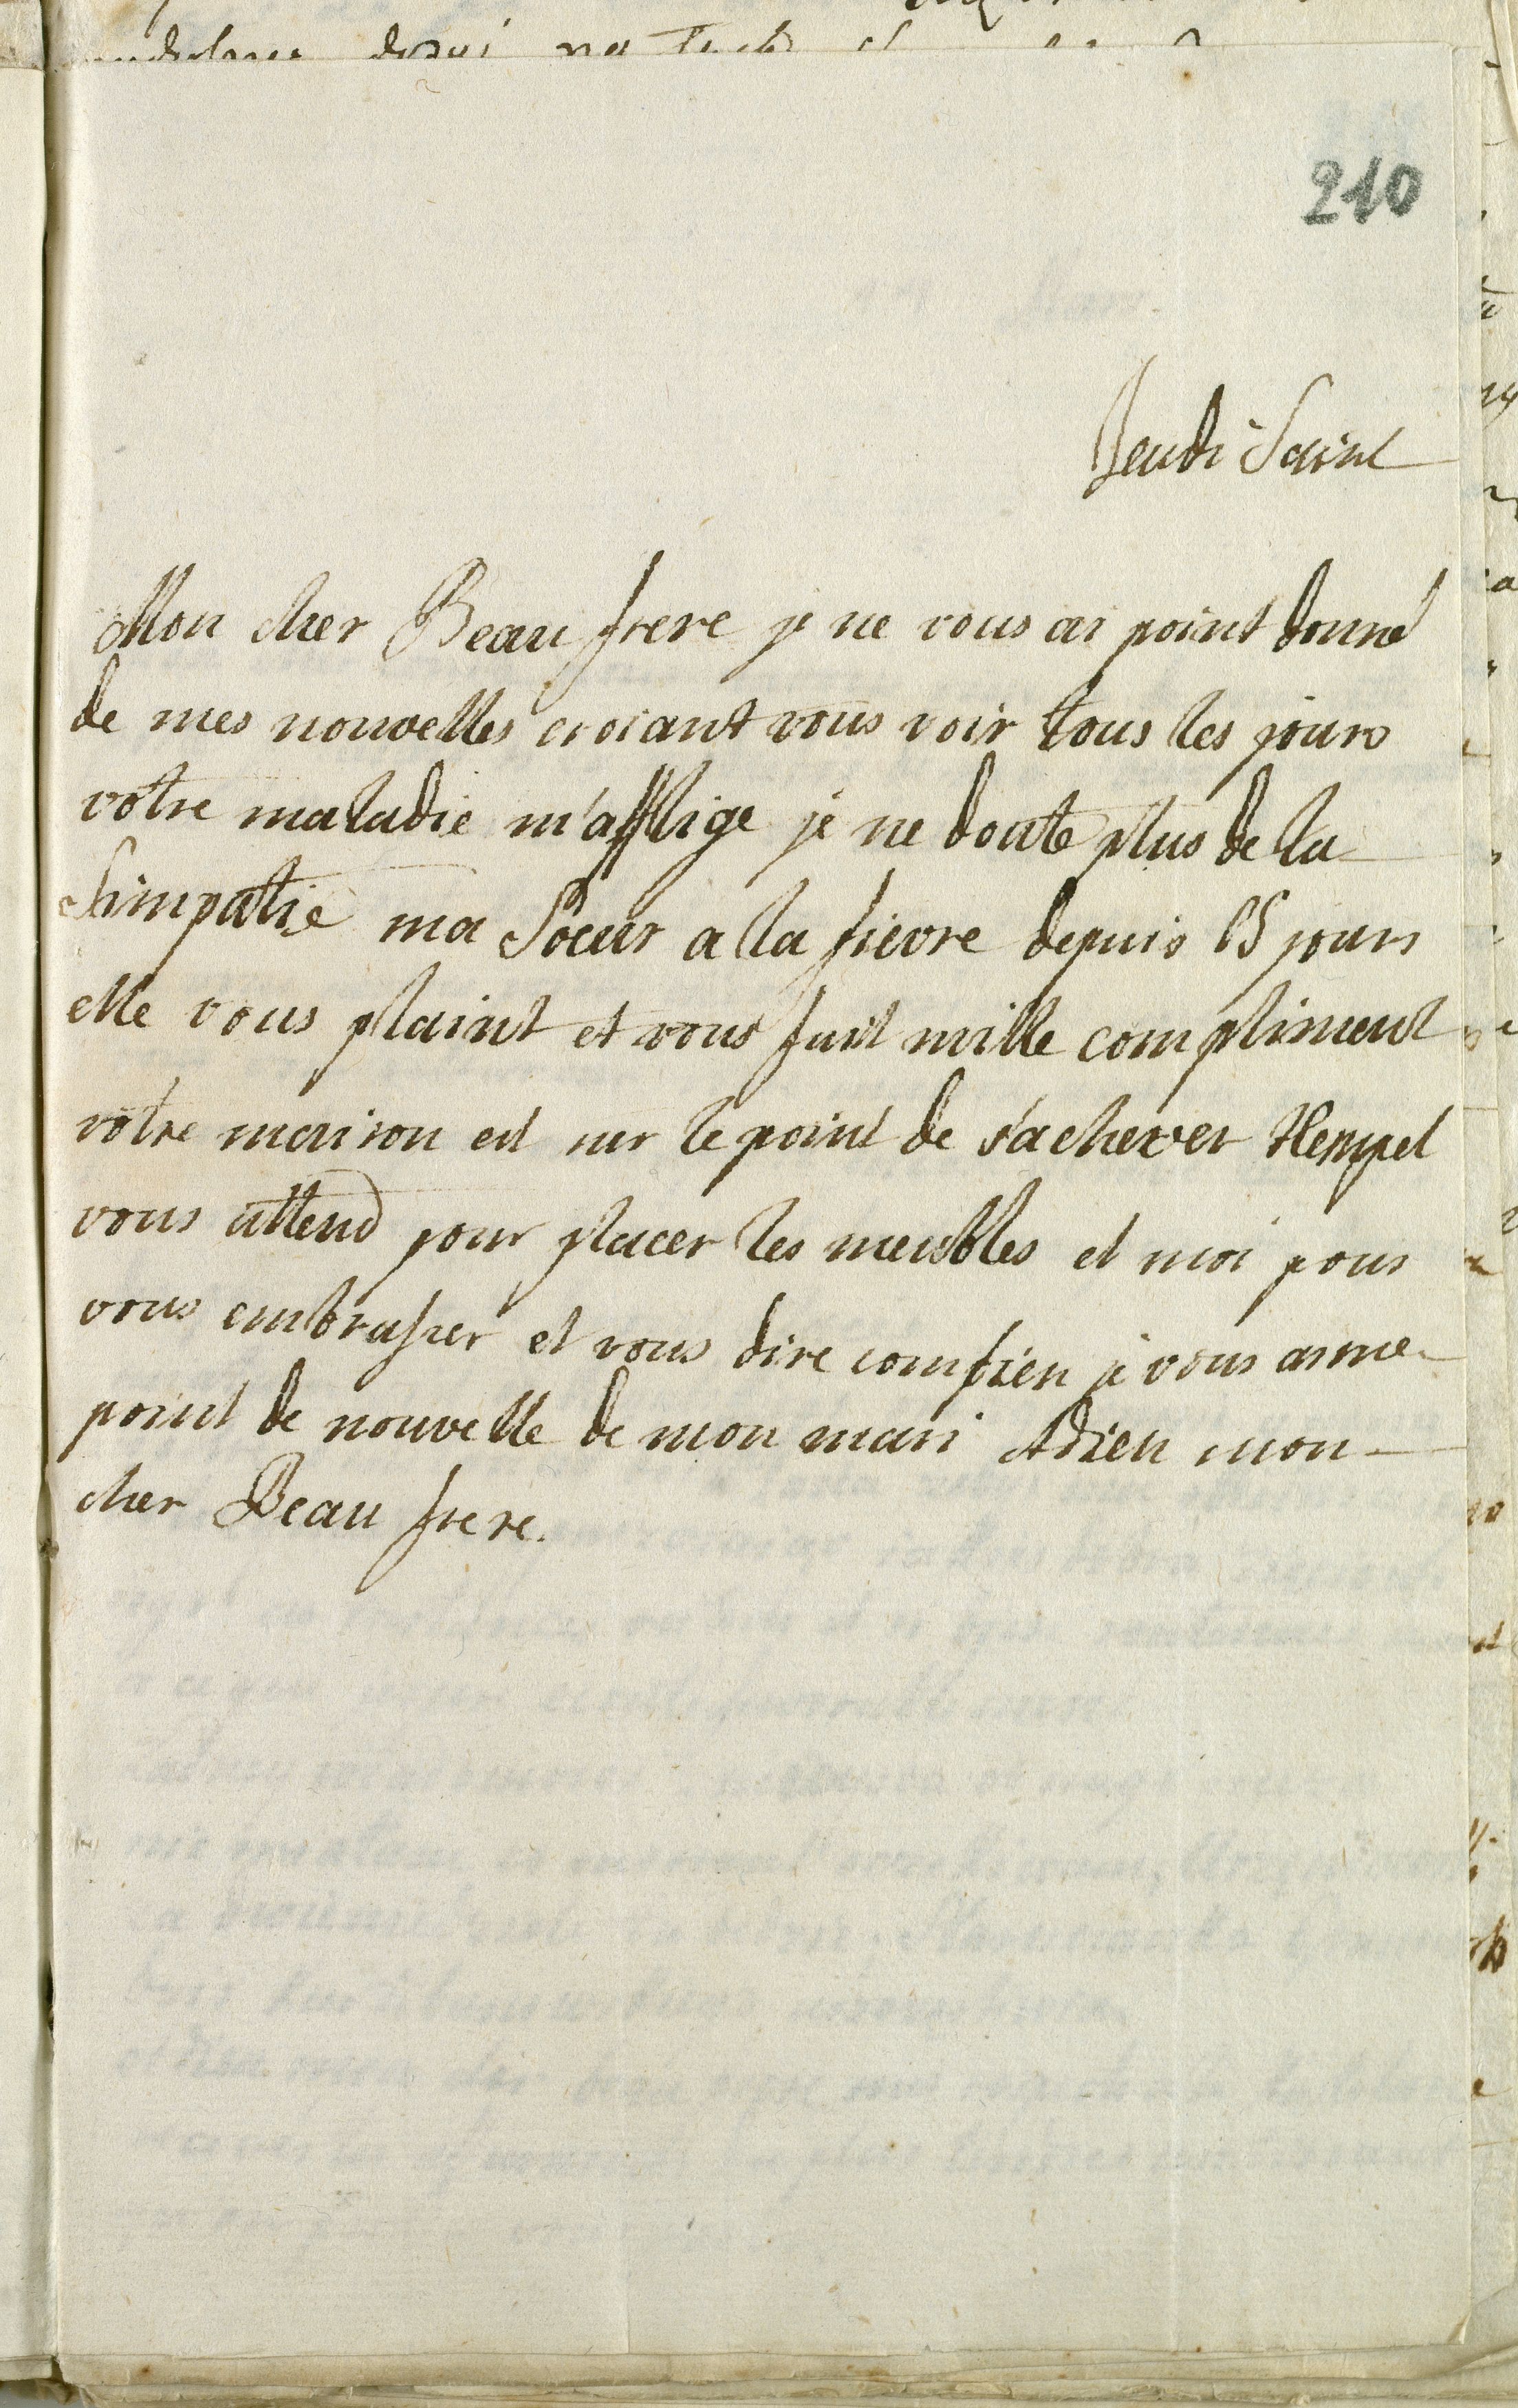 210
Jeudi Saint
Mon cher Beau frere je ne vous ai point donné
de mes nouvelles croiant vous voir tous les jours
votre maladie m'afflige je ne doute plus de la
Simpatie ma Soeur a la fievre depuis 15 jours
elle vous plaint et vous fait mille compliment
votre maison est sur le point de s'achever Hempel
vous attend pour placer les meubles et moi pour
vous embrasser et vous dire combien je vous aime
point de nouvelle de mon mari Adieu mon
cher Beau frere.